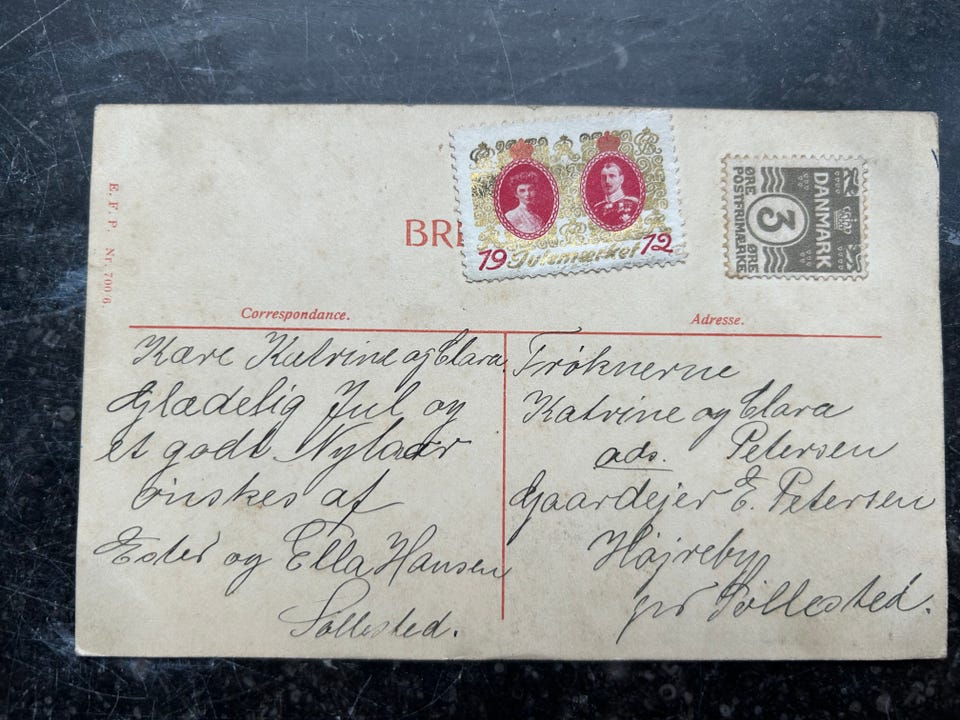 E. F. P. Nr. 7006.
BRE
19 Julemærket 12
DANMARK
3
ØRE ØRE
POSTFRIMÆRKE
Correspondance.
Adresse.
Kære Katrine og Clara
Glædelig Jul og
et godt Nytaar
ønskes af
Ester og Ella Hansen
Søllested.
Frøknerne
Katrine og Clara
ads. Petersen
Gaardejer E. Petersen
Højreby
pr Søllested.